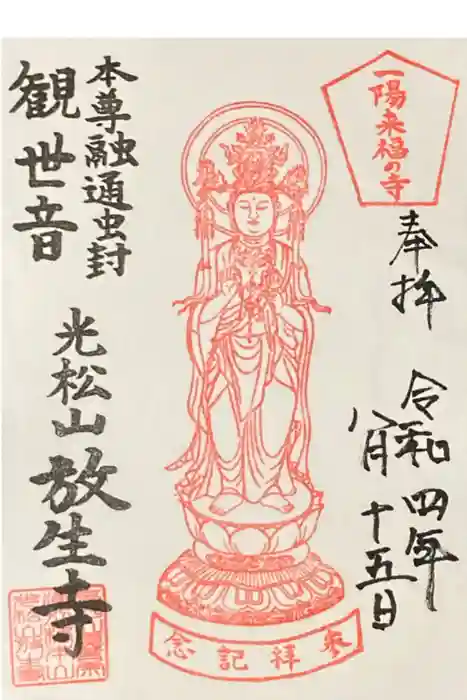 一陽来福の寺
奉拝
令和四年
八月十五日
本尊融通虫封
観世音
光松山放生寺
念記拝来